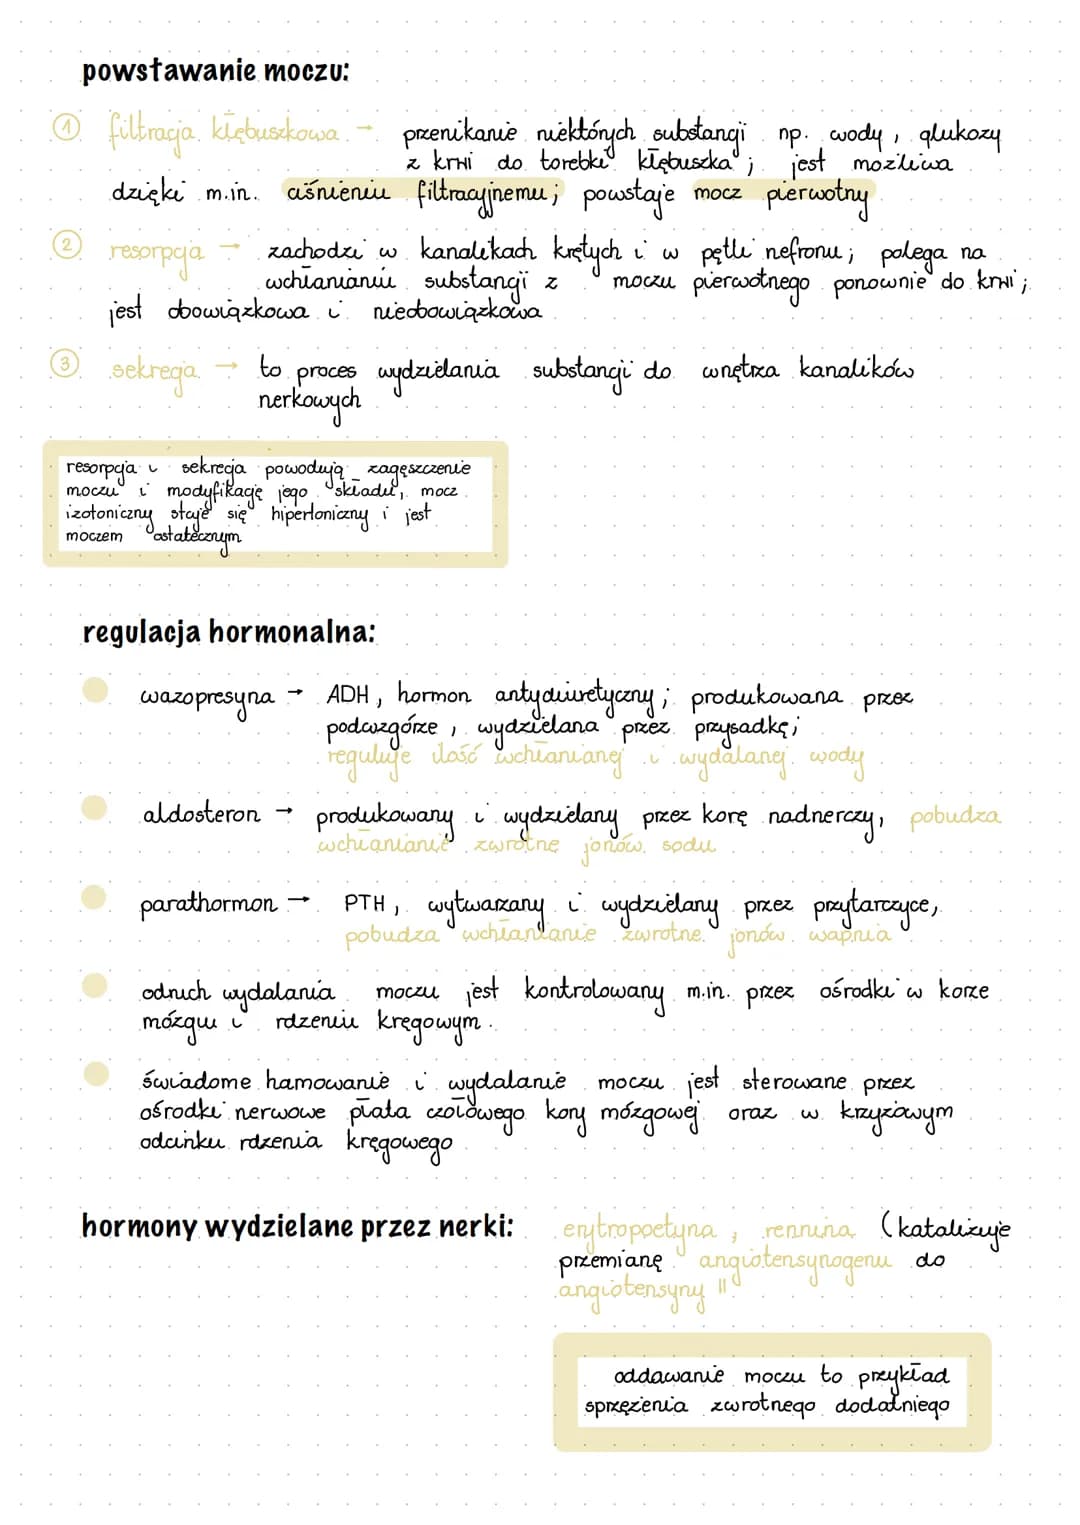 powstawanie moczu:
① filtracja kłębuszkowa → przenikanie niektórych substancji np. wody, glukozy
z krwi do torebki kłębuszka; jest możliwa
dzięki m.in. ciśnieniu filtracyjnemu; powstaje mocz pierwotny
② resorpcja → zachodzi w kanalikach krętych i w pętli nefronu; polega na
wchłanianiu substancji z moczu pierwotnego ponownie do krwi;
jest obowiązkowa i nieobowiązkowa
③ sekrecja → to proces wydzielania substancji do wnętrza kanalików
nerkowych
resorpcja i sekrecja powodują zagęszczenie
moczu i modyfikację jego składu, mocz
izotoniczny staje się hipertoniczny i jest
moczem ostatecznym
regulacja hormonalna:
wazopresyna → ADH, hormon antydiuretyczny; produkowana przez
podwzgórze, wydzielana przez przysadkę;
reguluje ilość wchłanianej i wydalanej wody
aldosteron → produkowany i wydzielany przez korę nadnerczy, pobudza
wchłanianie zwrotne jonów sodu
parathormon → PTH, wytwarzany i wydzielany przez przytarczyce,
pobudza wchłanianie zwrotne jonów wapnia
odruch wydalania moczu jest kontrolowany m.in. przez ośrodki w korze
mózgu i rdzeniu kręgowym.
świadome hamowanie i wydalanie moczu jest sterowane przez
ośrodki nerwowe płata czołowego kory mózgowej oraz w krzyżowym
odcinku rdzenia kręgowego
hormony wydzielane przez nerki: erytropoetyna, rennina (katalizuje
przemianę angiotensynogenu do
angiotensyny II
oddawanie moczu to przykład
sprzężenia zwrotnego dodatniego